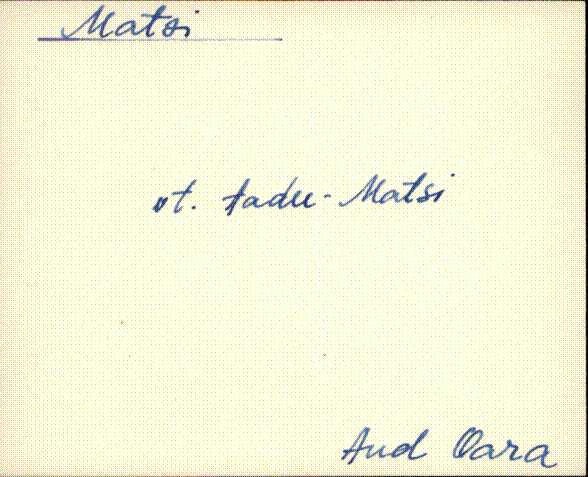 Matsi
vt. Aadu-Matsi
Aud Oara